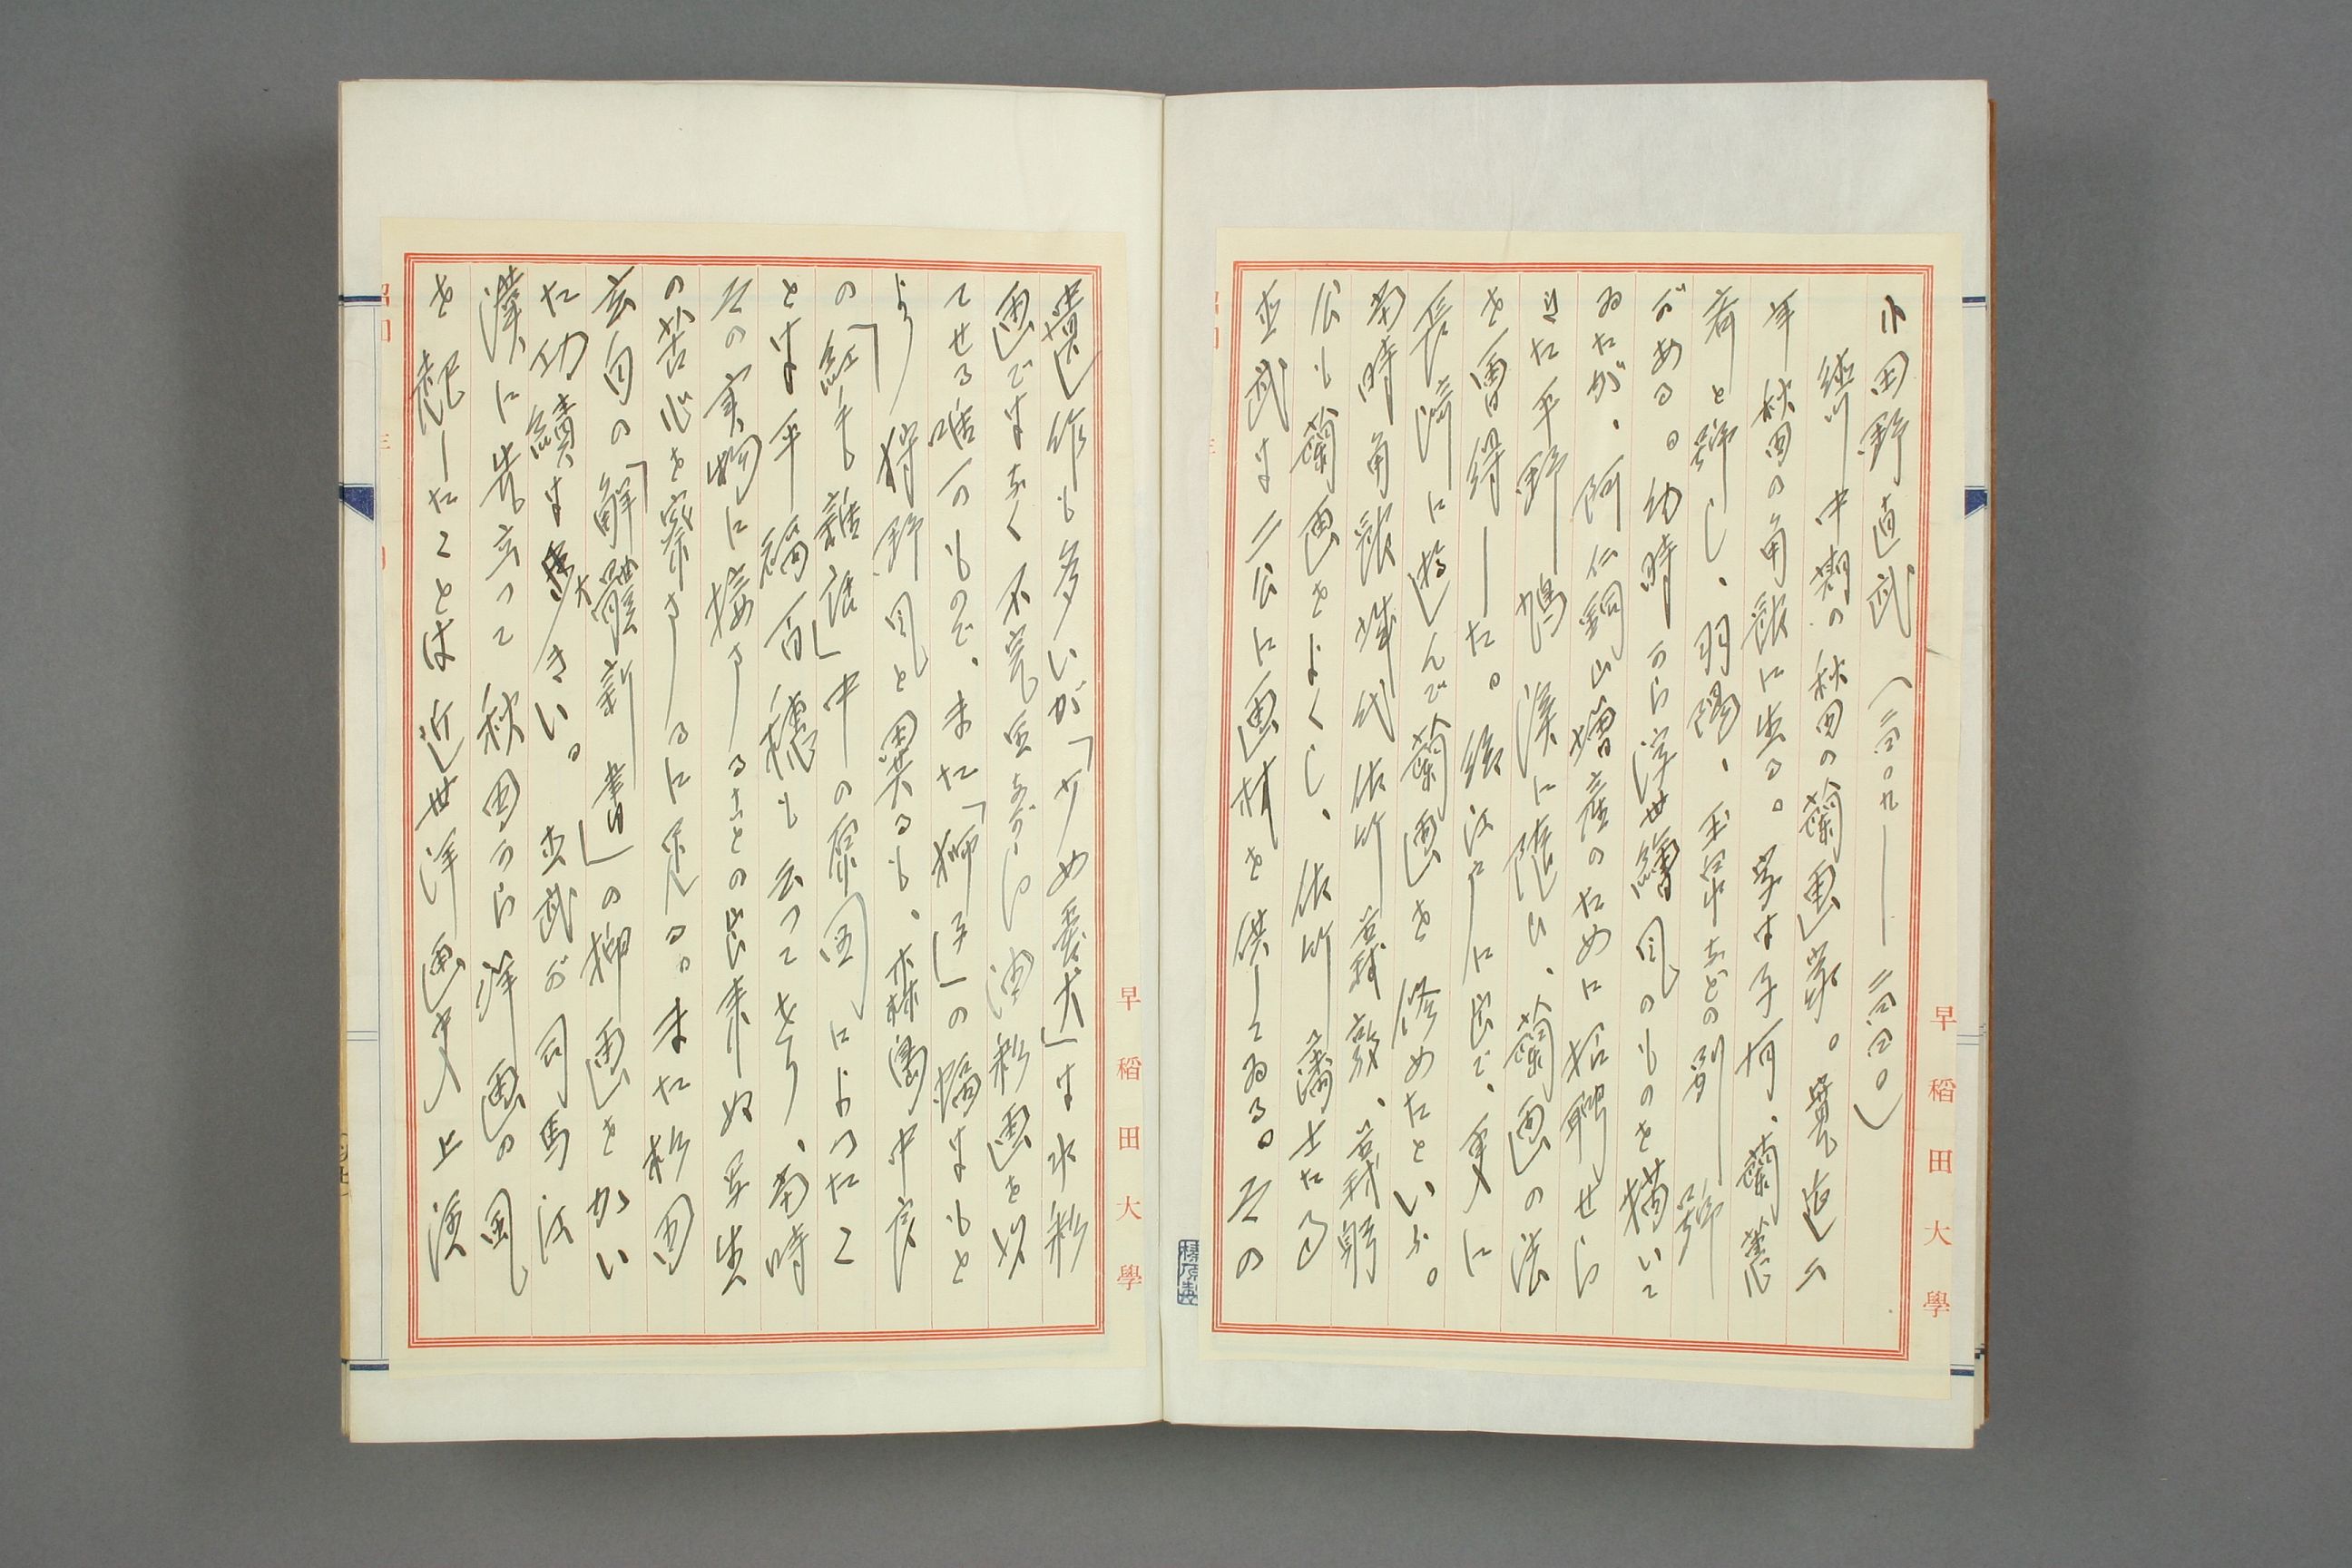 小田野直武 (二四〇九——二四四〇)
徳川中期の秋田の蘭画家。寛延二
年秋田の角館に生る。字は子有、蘭慕
斎と号し、羽陽、玉泉などの別号
がある。幼時から浮世繪風のものを描いて
ゐたが、阿仁銅山増産のために招聘せら
れた平野鳩渓に随ひ、蘭画の法
を習得した。後江戸に出で、更に
長濤に遊んで蘭画を修めたといふ。
当時角館城代佐竹義躬
公も蘭画をよくし、佐竹藩士たる
直武は二公に画材を供してゐる。その
遺作も多いが「少め愛犬」は水彩
画ではなく不完全ながら油彩画を以
てせる唯一のもので、また「獅子」の図はもと
より狩野風と異るも、森島中良
の「紅毛雑話」中の原図によつたこ
とは平福百穂も云つてをり、当時
その実物に接することの出来ぬ写生
の苦心を察するに足る。また杉田
玄白の「解體新書」の挿画をかい
た功績は大きい。直武が司馬江
漢に先立つて秋田から洋画の風
を起したことは近世洋画史上演
早稲田大學
早稲田大學
榛原製